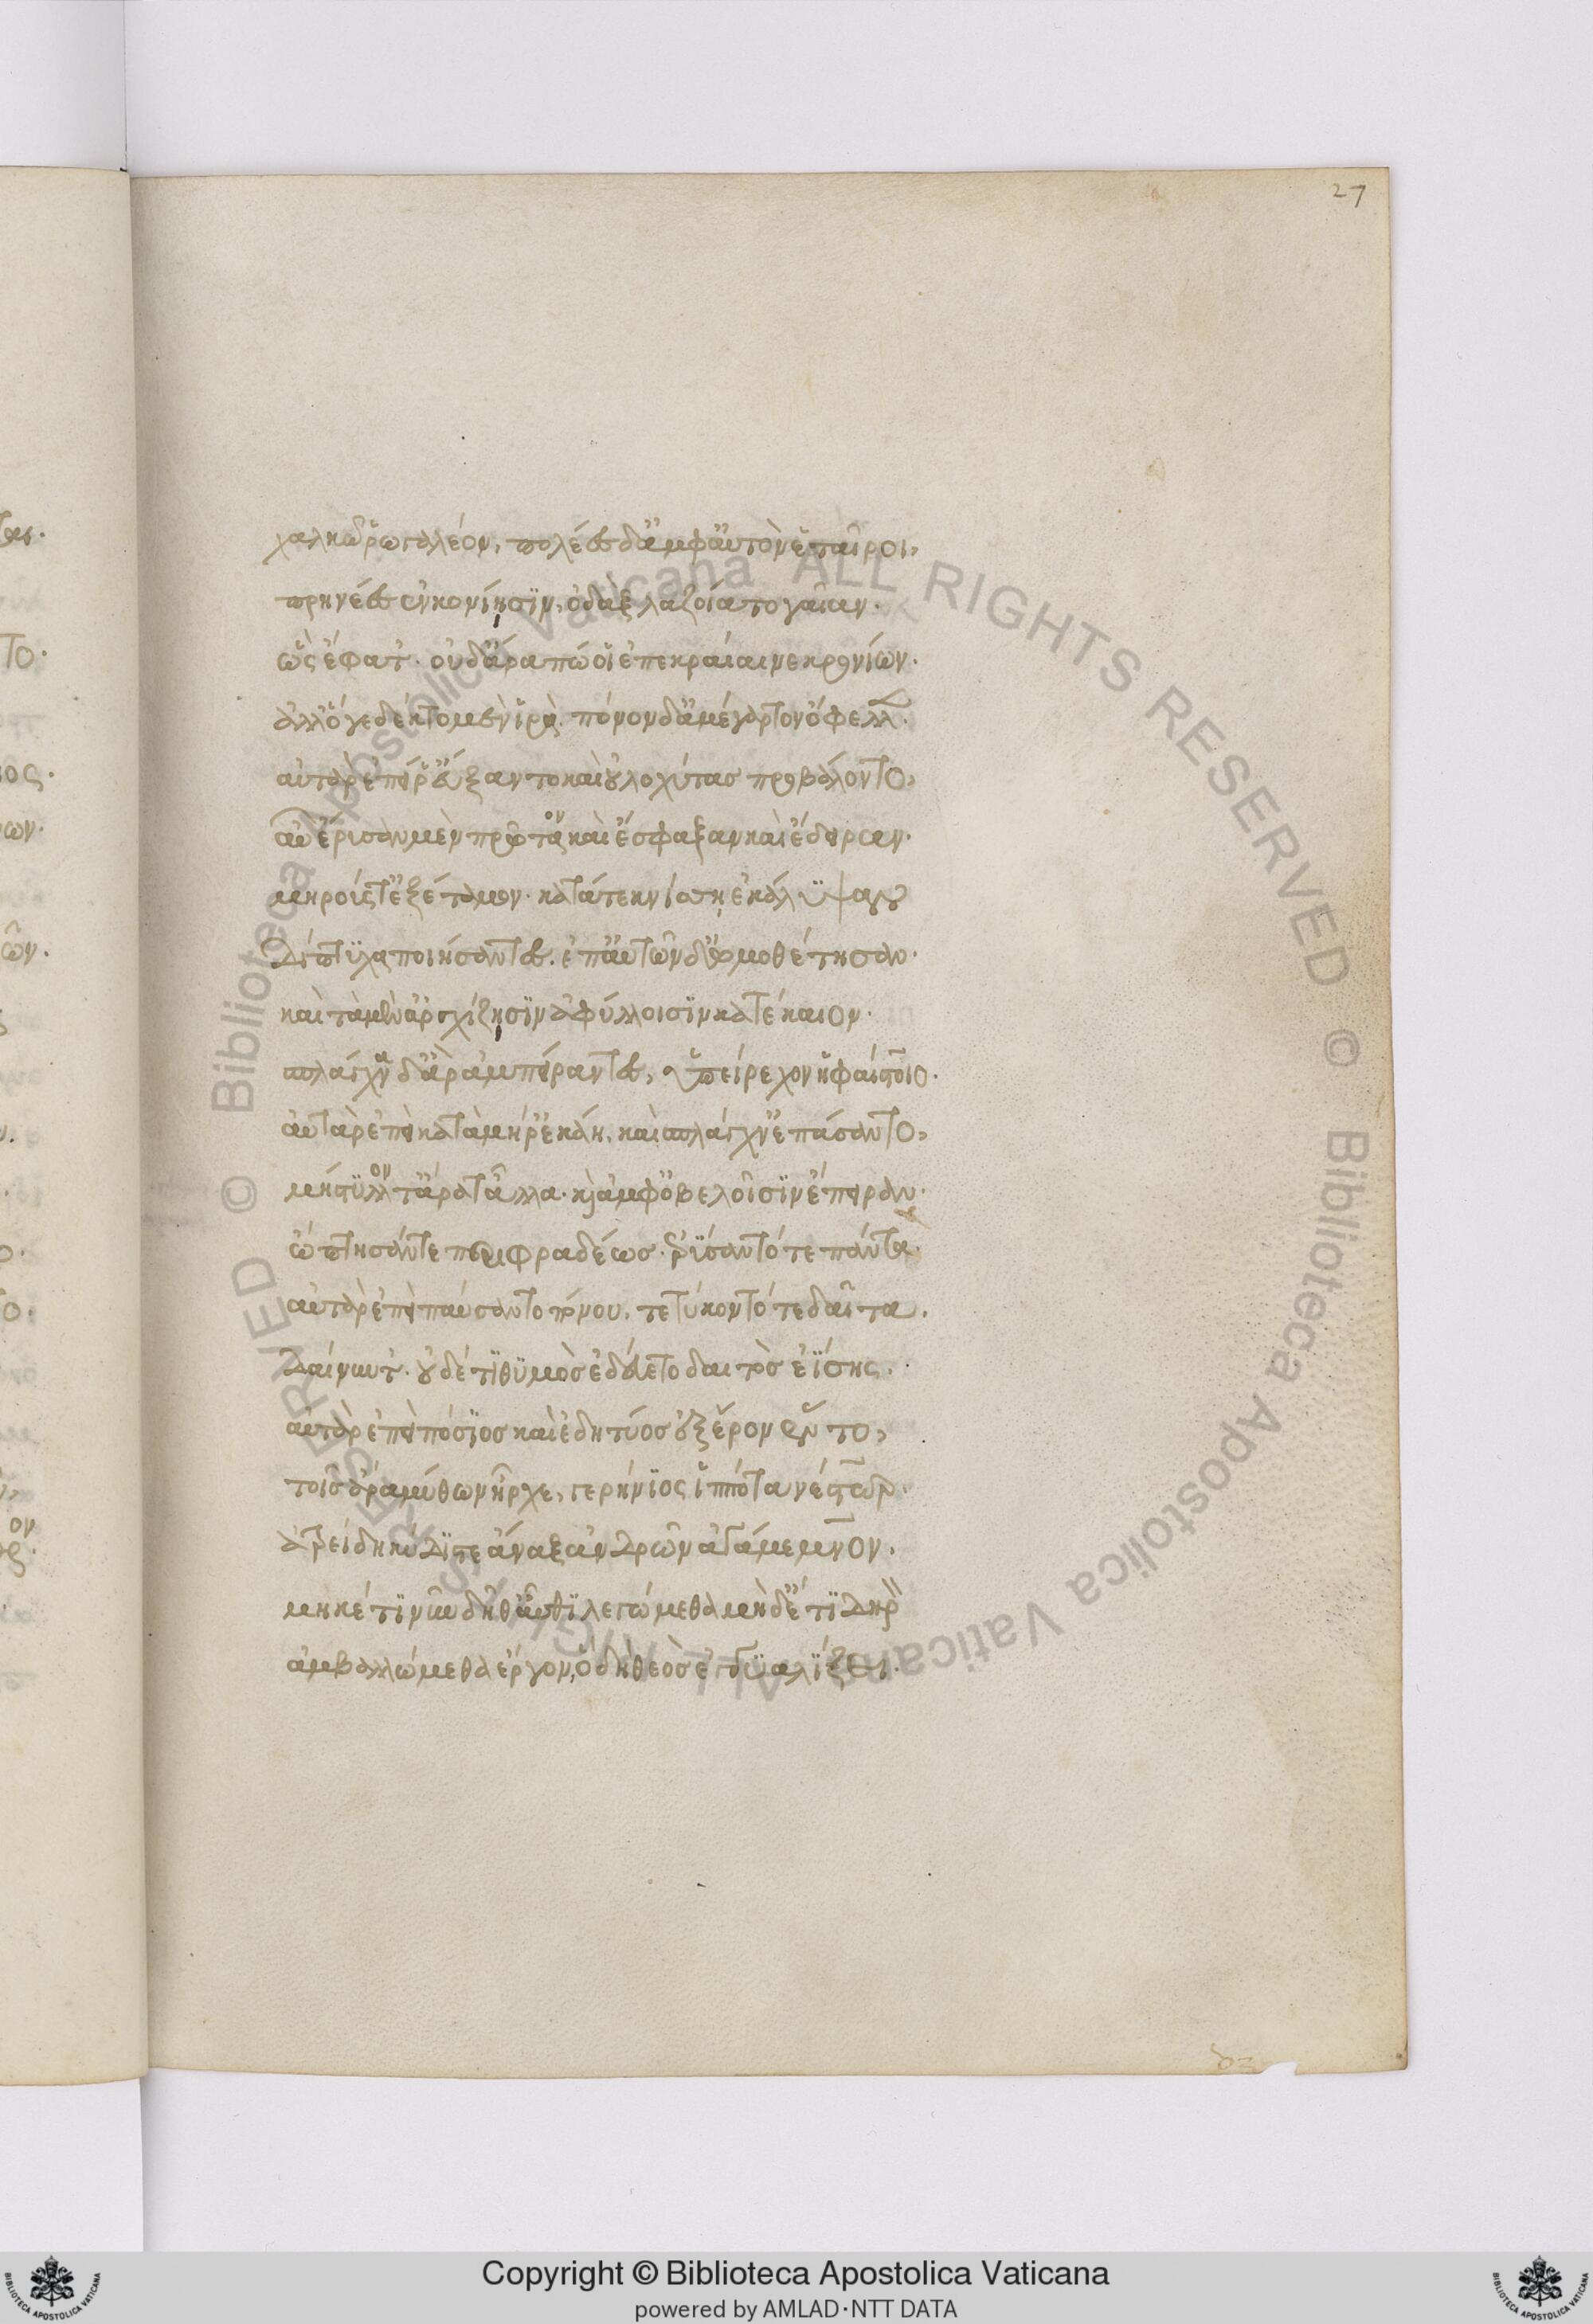 27
χαλκῶ ῥωγαλέον, πολέες δ' ἀμφ' αὐτὸν ἑταῖροι,
πρηνέες ἐν κονίῃσϊν, ὀδὰξ λαζοίατο γαῖαν.
ὣς ἔφατ'. οὐδ' ἄρα πώ οἱ ἐπεκραίαινε κρονίων.
ἀλλ' ὅγε δέκτο μὲν ἱρὰ. πόνον δ' ἀμέγαρτον ὄφελλεν.
αὐτὰρ ἐπεί ῥ' εὔξαντο καὶ οὐλοχύτας προβάλοντο,
αὖ ἔρυσαν μὲν πρῶτα καὶ ἔσφαξαν καὶ ἔδειραν.
μηρούς τ' ἐξέταμον. κατά τε κνίσῃ ἐκάλϋψαν
Δίπτϋχα ποιήσαντες. ἐπ' αὐτῶν δ' ὠμοθέτησαν.
καὶ τὰ μὲν ἂρ σχίζῃσϊν ἀφύλλοισϊν κατέκαιον.
σπλάγχνα δ' ἂρ ἀμπείραντες, ὑπείρεχον ἡφαίστοιο.
αὐτὰρ ἐπεὶ κατὰ μῆρ' ἐκάη, καὶ σπλάγχν' ἐπάσαντο,
μίστϋλλον τ' ἄρα τἆλλα. καὶ ἀμφ' ὀβελοῖσϊν ἔπειραν.
ὤπτησάν τε περιφραδέως. ἐρΰσαντό τε πάντα.
αὐτὰρ ἐπεὶ παύσαντο πόνου, τετύκοντό τε δαῖτα.
Δαίνυντ'. οὐδέ τϊ θϋμὸς ἐδεύετο δαιτὸς ἐΐσης.
αὐτὰρ ἐπεὶ πόσϊος καὶ ἐδητύος ἐξ ἔρον ἕντο,
τοῖς ἄρα μύθων ἦρχε, γερήνϊος ἱππότα νέστωρ.
ἀτρείδη κύΔϊστε ἄναξ ἀνΔρῶν ἀγάμεμνον.
μηκέτϊ νῦν δηθ' αὖθϊ λεγώμεθα μηδ' ἔτϊ Δηρὸν
ἀμβαλλώμεθα ἔργον, ὃ δὴ θεὸς ἐγγϋαλΐξει.
Copyright © Biblioteca Apostolica Vaticana
powered by AMLAD・NTT DATA